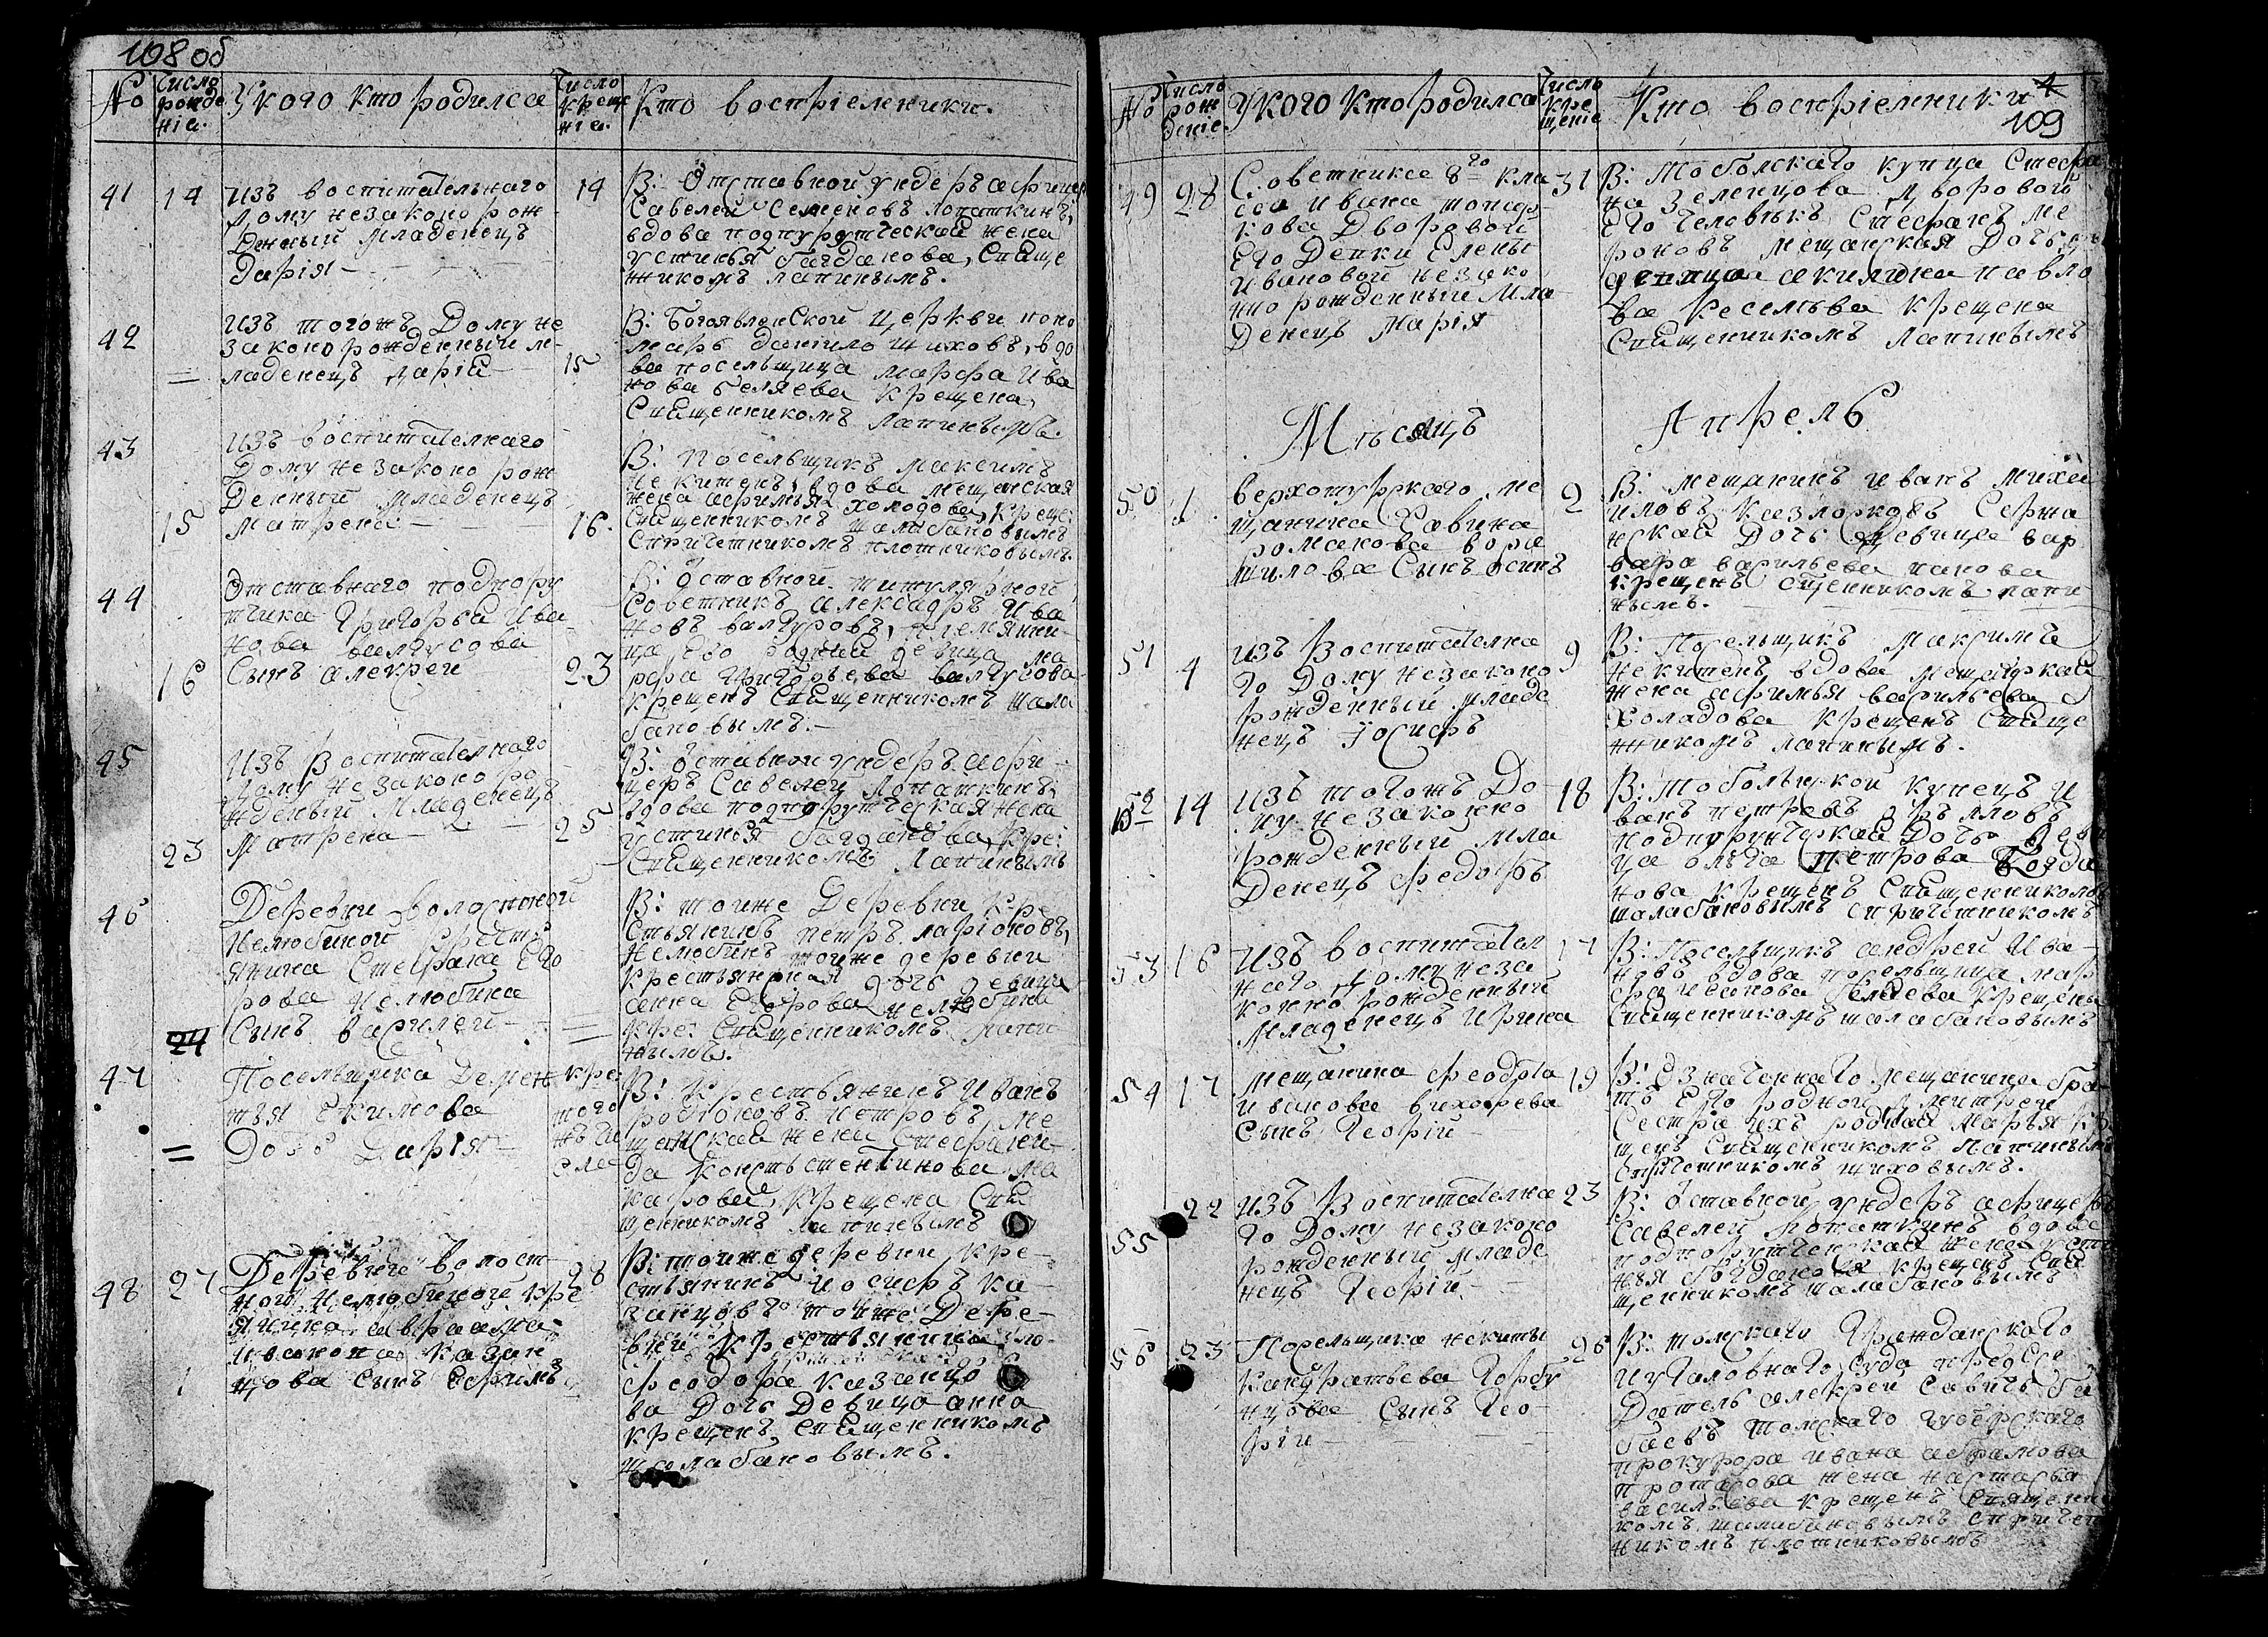 108 об
№
Число рожденіа.
У кого кто родилса
Число крещеніа.
Кто воспріемники.
41
14
изъ воспитательнаго
дому незаконо рож
денный младенецъ
дарія
14
В: Отставной ундеръ афицеръ
Савелей Семеновъ лопаткинъ,
вдова подпорутческая жена
устинья багданова, Сщаще
нникомъ лапинымъ.
42
=
изъ тогожъ дому не
законорожденный м
ладенецъ дарія
15
В: Богоявленской церкви поно
марь данило шиховъ, вдо
ва посельщица марфа ива
нова беляева крещена,
Сщащенникомъ лапинымъ.
43
15
изъ воспитателнаго
дому незаконо рож
денный младенецъ
матрена
16.
В: посельщикъ максимъ
некитенъ, вдова мещенская
жена афимья холодова, креще:
Сщащенникомъ шалабановымъ
Спричетникомъ плотниковымъ.
44
16
Отставнаго подпору
тчика григорья ива
нова валгусова
Сынъ алексеи
23
В: оставной титулярной
Советникъ александръ ива
новъ валгусовъ, племянни
ца его родная девица ма
рфа григорьева валгусова
крещенъ Сщащенникомъ шала
бановымъ.
45
23
Изъ Воспитателнаго
дому незаконо ро
жденный младенецъ
матрена
25
В: оставной ундеръ афи
церъ Савелеи лопаткинъ,
вдова подпорутческая жена
устинья багданова, кре:
Сщащенникомъ лапинымъ
46
24
Деревни волостной
Нелюбиной крестъ
янина Стефана Его
рова Нелюбина
Сынъ василеи
=
В: тоиже деревни кре
стьянинъ петръ ларіоновъ,
нелюбинъ тоиже деревни
крестьянская дочь девица
анна Егорова нелюбина
кре: Сщащенникомъ лапи
нымъ.
47
=
Посельщика демен
тья Екимова
Дочь дарія
кре:
того
жъ чи
сла
В: крестьянинъ иванъ
родіоновъ петровъ, ме
щенская жена Стефани
да констьстентинова ма
карова, крещена Сща
щенникомъ лапинымъ
48
27
Деревни волост
ной нелюбиной кре
янина авраама
иванова казан
цова Сынъ ефимъ
28
В: тоиже деревни кре
стьянинъ иосифъ ка
занцовъ тоиже дере
вни крестьянина
феодора казанцо
ва дочь девица анна
крещенъ Сщащенникомъ
шалабановымъ.
4
109
№
Число рожденіе.
У кого кто родилса
Число крещеніе
Кто воспріемники
49
28
Советника 8го кла
сса ивана
кова дворовой
Его девки Елены
ивановой незако
нно рожденный мла
денецъ марія
31
В: Тоболскаго купца Стефа
на зеленцова дворовой
Его человѣкъ Стефанъ ме
роновъ мещанская дочь
девица акилина павло
ва кеселева крещена
Сщащенникомъ лапинымъ
Мѣсяцъ Апрель
50
1
верхотурскаго ме
щанина Савина
романова вора
шилова Сынъ осипъ
2
В: мещанинъ иванъ михаи
ловъ казларковъ Сержа
нская дочь девица вар
вара васильева панова
крещенъ Сщенникомъ лапи
нымъ.
51
4
изъ Воспитателна
го дому незаконо
рожденный младе
нецъ іосифъ
9
В: Посельщикъ максимъ
некитенъ вдова мещанская
жена афимья васильева
Холадова крещенъ Сщаще
нникомъ лапинымъ.
52
14
изъ тогожъ до
му незаконно
рожденный мла
денецъ федоръ
18
В: тобольской купецъ и
ванъ петровъ
подпорутчская дочь деви
ца ольга петрова богда
нова крещенъ Сщащенникомъ
шалабановымъ спричетникомъ
53
16
Изъ воспитател
наго дому неза
конно рожденный
младенецъ ирина
17
В: Посельщикъ андреи ива
новъ вдова посельщица мар
фа иванова беляева крещена
Сщащенникомъ шалабановымъ
54
17
мещанина феодота
иванова вихорева
сынъ георгіи
19
В: означеннаго мещанина бра
тъ Его родной димитреи
Сестра ихъ родная марья кре
щенъ Сщащенникомъ лапинымъ
Спричетникомъ шиховымъ.
55
22
изъ Воспитателна
го дому незаконо
рожденный младе
нецъ георгіи
23
В: оставной ундеръ афицеръ
Савелеи лопаткинъ вдова
подпорутческая жена усти
нья богданова крещенъ Сща
щенникомъ шалабановымъ
56
23
Посельщика некиты
кандратьева горбу
нцова Сынъ гео
ргіи
26
В: томскаго гражданскаго
и уголовнаго суда предсе
датель алексеи Савичь ба
баевъ томскаго губерскаго
прокурора ивана абрамова
протасова жена настасья
васильева крещенъ Сщащенни
комъ шалабановымъ спричет
никомъ плотниковымъ